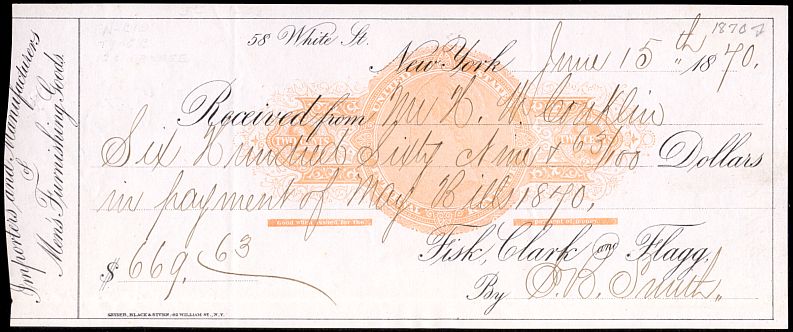 1870
58 White St.
New York June 15th 1870.
Received from Mr H. W. Conklin
Six Hundred Sixty Nine & 63/100 Dollars
in payment of May Bill 1870,
Good when issued for the payment of money.
$ 669.63
Fisk, Clark and Flagg.
By S. B. Smith.
Importers and Manufacturers
of
Men's Furnishing Goods
UNITED STATES
KEYSER, BLACK & STIVER, 62 WILLIAM ST., N.Y.